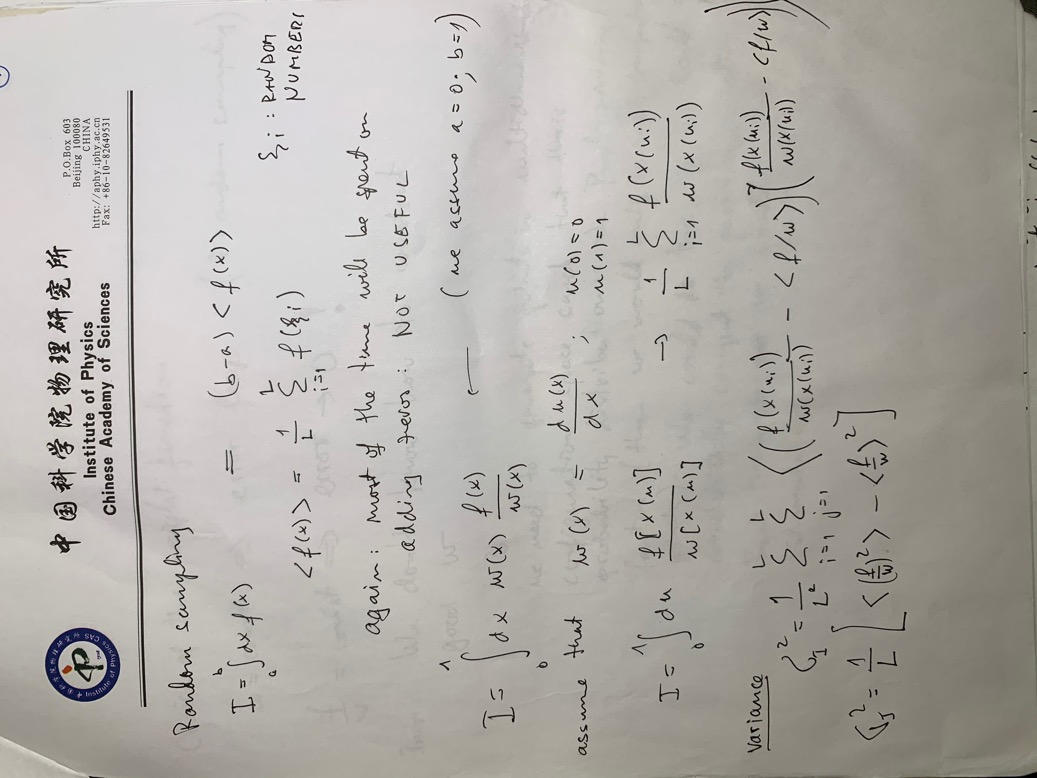 中国科学院物理研究所
Institute of Physics
Chinese Academy of Sciences
P.O.Box 603
Beijing 100080
CHINA
http://aphy.iphy.ac.cn
Fax: +86-10-82649531
Institute of Physics CAS
Random sampling
I = ∫_a^b dx f(x) = (b-a) <f(x)>
<f(x)> = 1/L Σ_{i=1}^L f(ξi) ξi : RANDOM NUMBERS
again: most of the time will be spent on
adding zeros: NOT USEFUL
I = ∫_0^1 dx w(x) f(x)/w(x) (we assume a=0, b=1)
assume that w(x) = du(x)/dx ; u(0)=0 u(1)=1
I = ∫_0^1 du f[x(u)]/w[x(u)] → 1/L Σ_{i=1}^L f(x(ui))/w(x(ui))
Variance
σ_I^2 = 1/L^2 Σ_{i=1}^L Σ_{j=1}^L <(f(x(ui))/w(x(ui)) - <f/w>)(f(x(uj))/w(x(uj)) - <f/w>)>
σ_I^2 = 1/L [<(f/w)^2> - <f/w>^2]